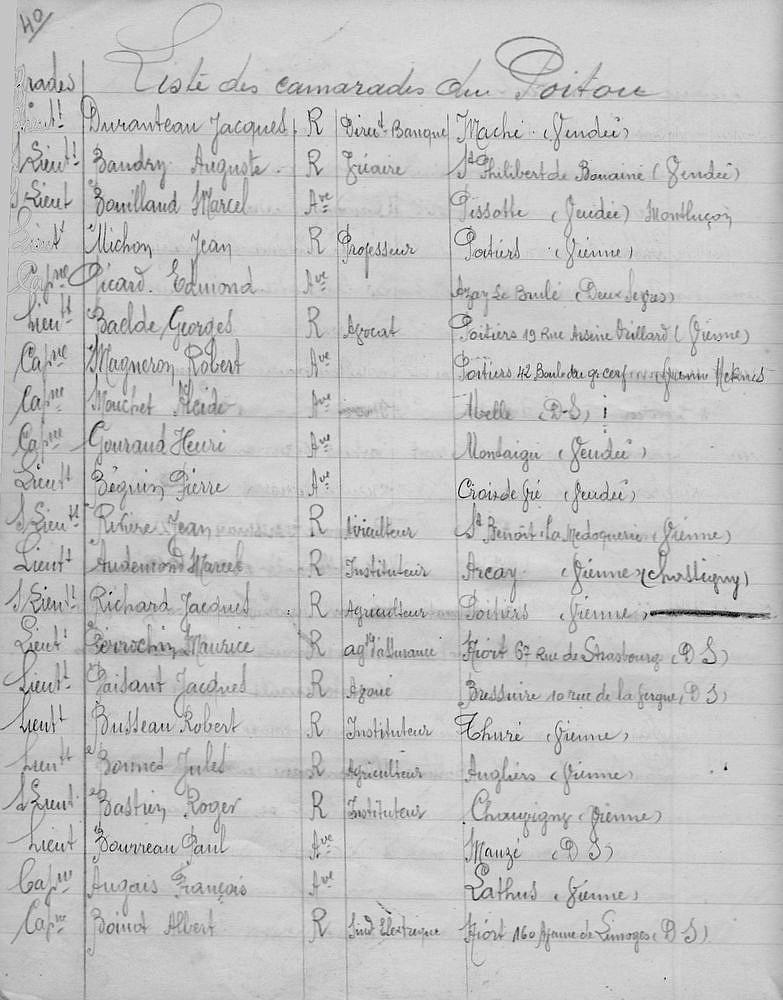 40
Grades Liste des camarades du Poitou
Lieutt Duranteau Jacques R Direct Banque Maché (Vendée)
S Lieutt Baudry Auguste R St Philibert de Bouaine (Vendée)
S Lieut Bouillaud Marcel Ave Pissotte (Vendée) Montluçon
Lieutt Michon Jean R Professeur Poitiers (Vienne)
Capne Picard Edmond Ave Azay Le Brulé (Deux Sevres)
Lieutt Baelde Georges R Avocat Poitiers 19 Rue Arsène (Vienne)
Capne Magneron Robert Ave Poitiers 42 Boul du gr cerf
Capne Mouchet Ave Melle (D-S)
Capne Gouraud Henri Ave Montaigu (Vendée)
Lieutt Béguin Pierre Ave (Vendée)
S Lieutt Rivière Jean R Aviculteur St Benoît La Medoquerie (Vienne)
Lieutt Audemond Marcel R Instituteur Arcay (Vienne)
S Lieutt Richard Jacques R Agriculteur Poitiers (Vienne)
Lieutt Maurice R agt d'assurance Niort 67 Rue de Strasbourg (D S)
Lieutt Paisant Jacques R Avoué Bressuire 10 rue de la (D S)
Lieutt Busseau Robert R Instituteur Thuré (Vienne)
Lieutt Bonnet Jules R Agriculteur Angliers (Vienne)
S Lieut Bastien Roger R Instituteur Chauvigny (Vienne)
Lieut Bourreau Paul Ave Mauzé (D S)
Capne Augais François Ave Lathus (Vienne)
Capne Boinot Albert R Ind Electrique Niort 160 de Limoges (D S)